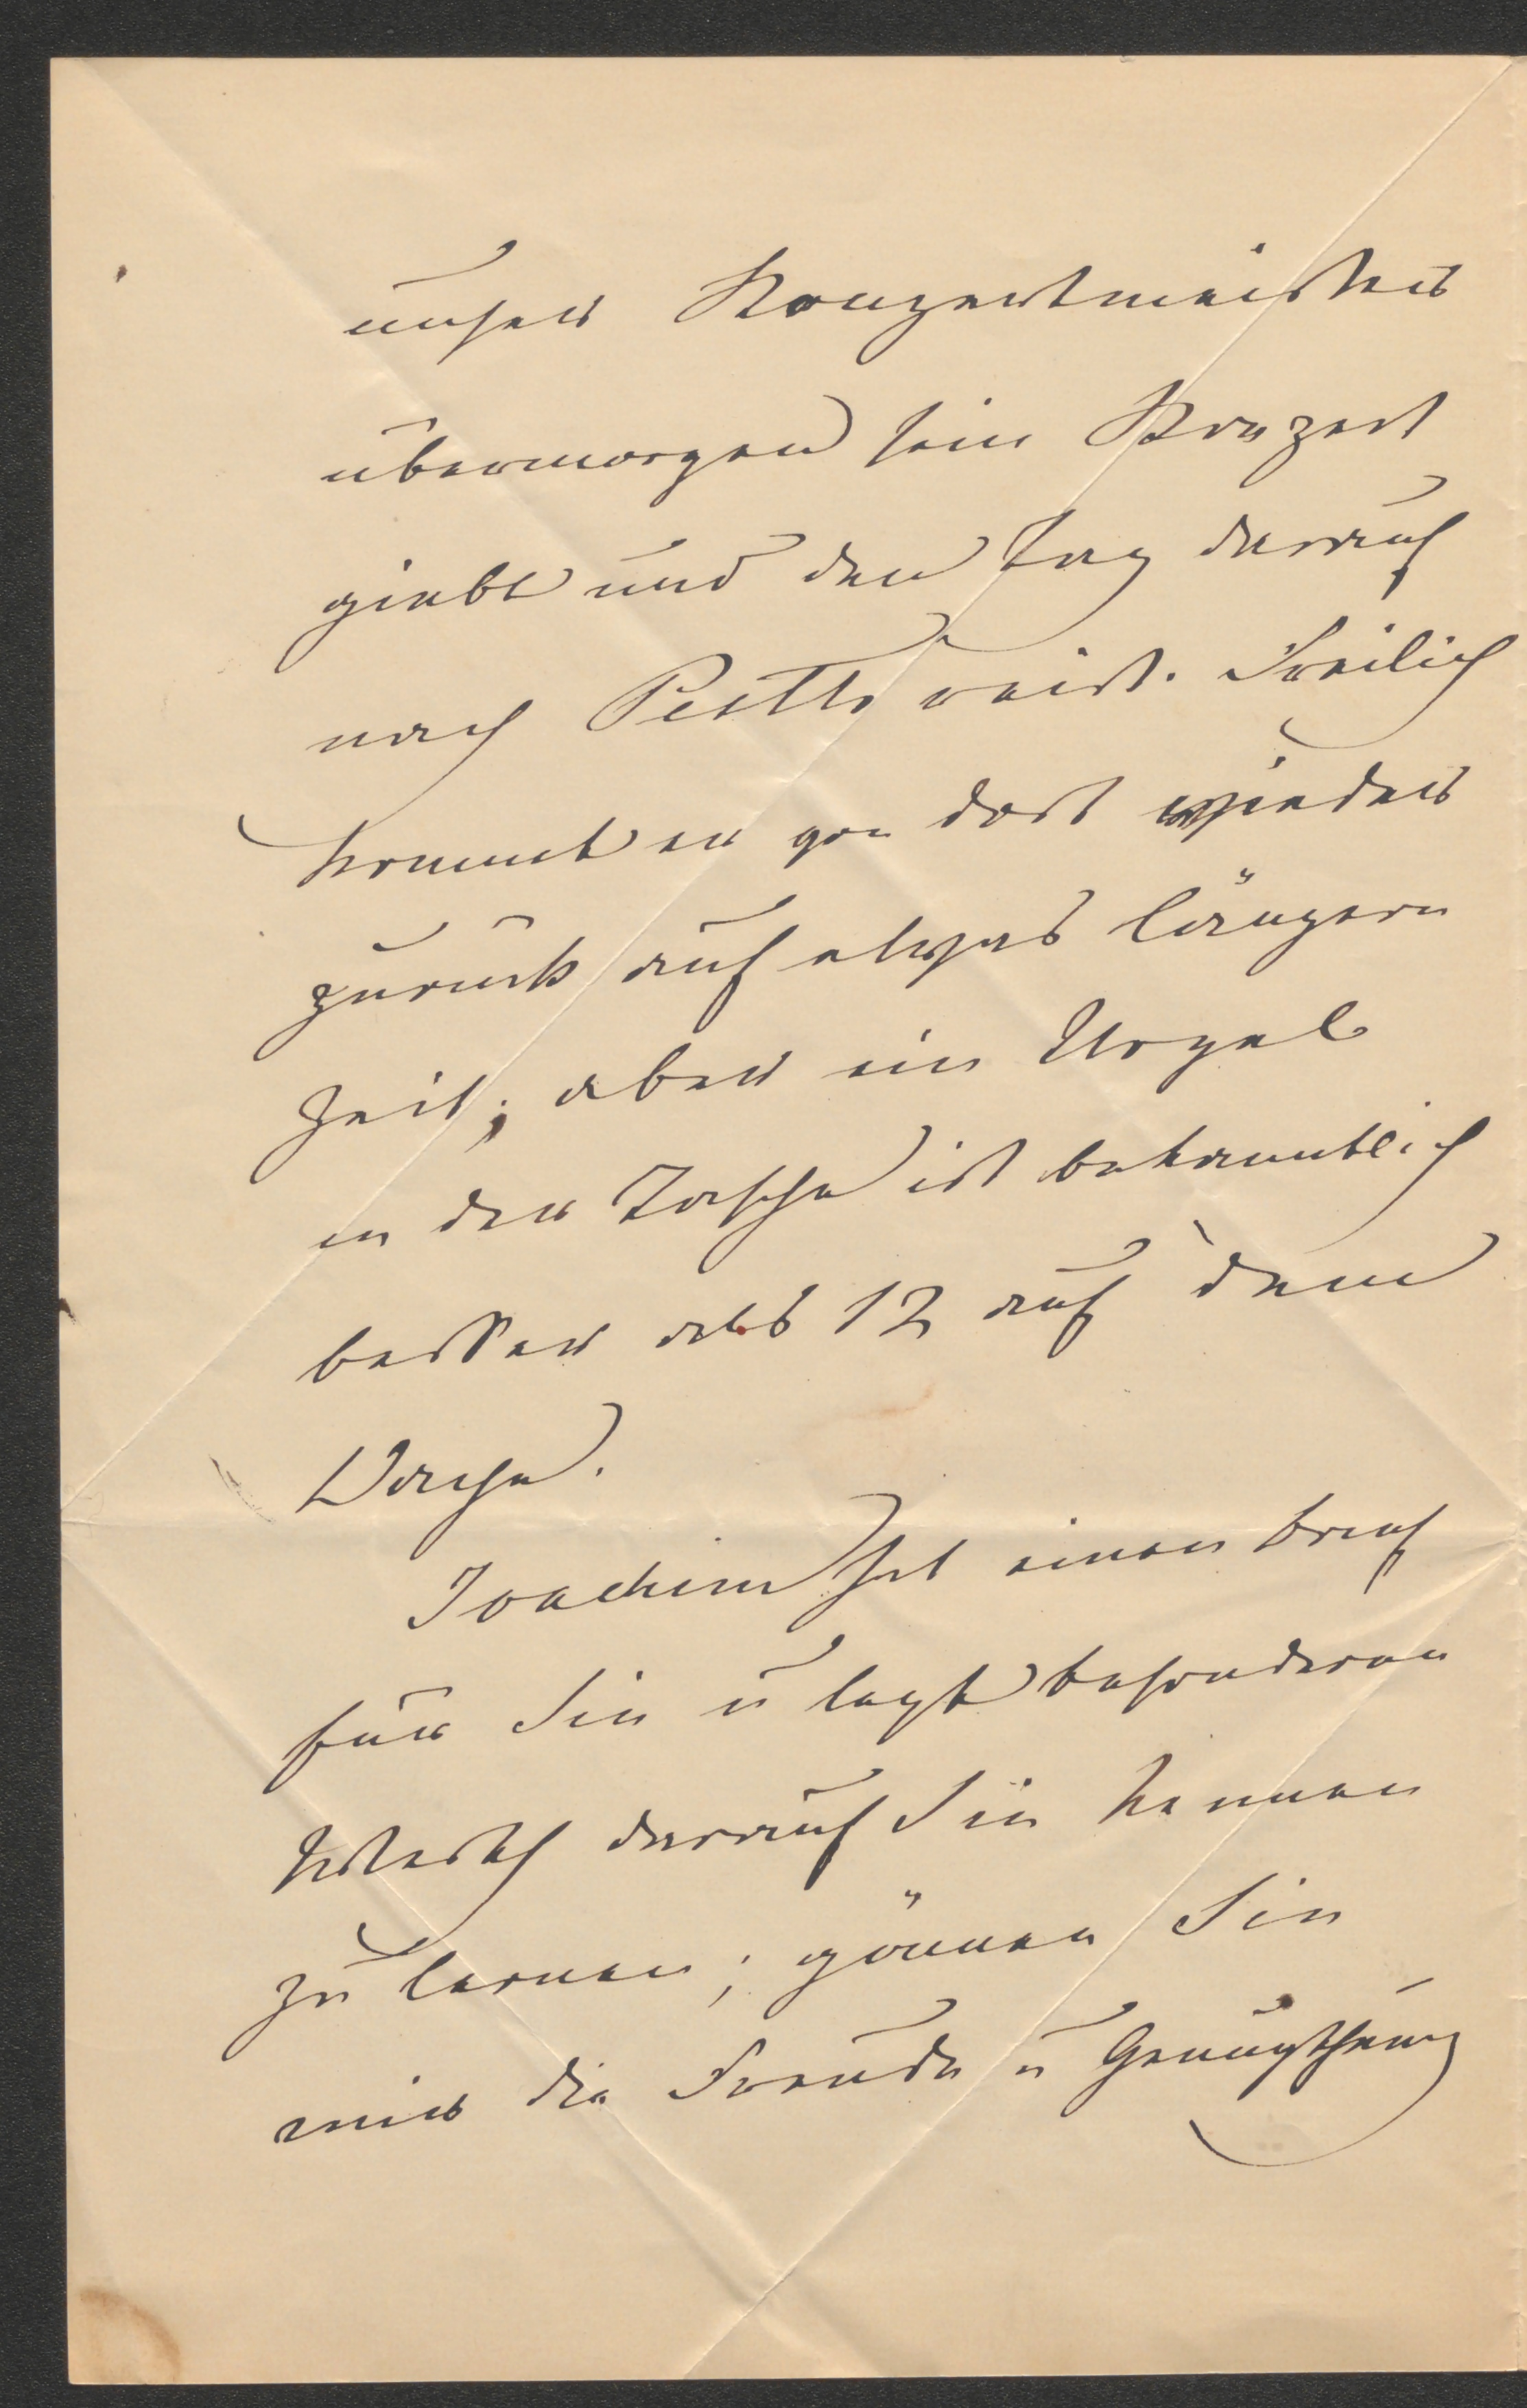 unser Konzertmeister
übermorgen sein Konzert
giebt und den Tag darauf
nach Pesth reist. Freilich
kommt er von dort wieder
zurück auf etwas längere
Zeit; aber ein Vogel
in der Tasche ist bekanntlich
besser als 12 auf dem
Dache.
Joachim hat einen Brief
für Sie u legt besonderen
Werth darauf Sie kennen
zu lernen; gönnen Sie
mir die Freude u Genugthuung